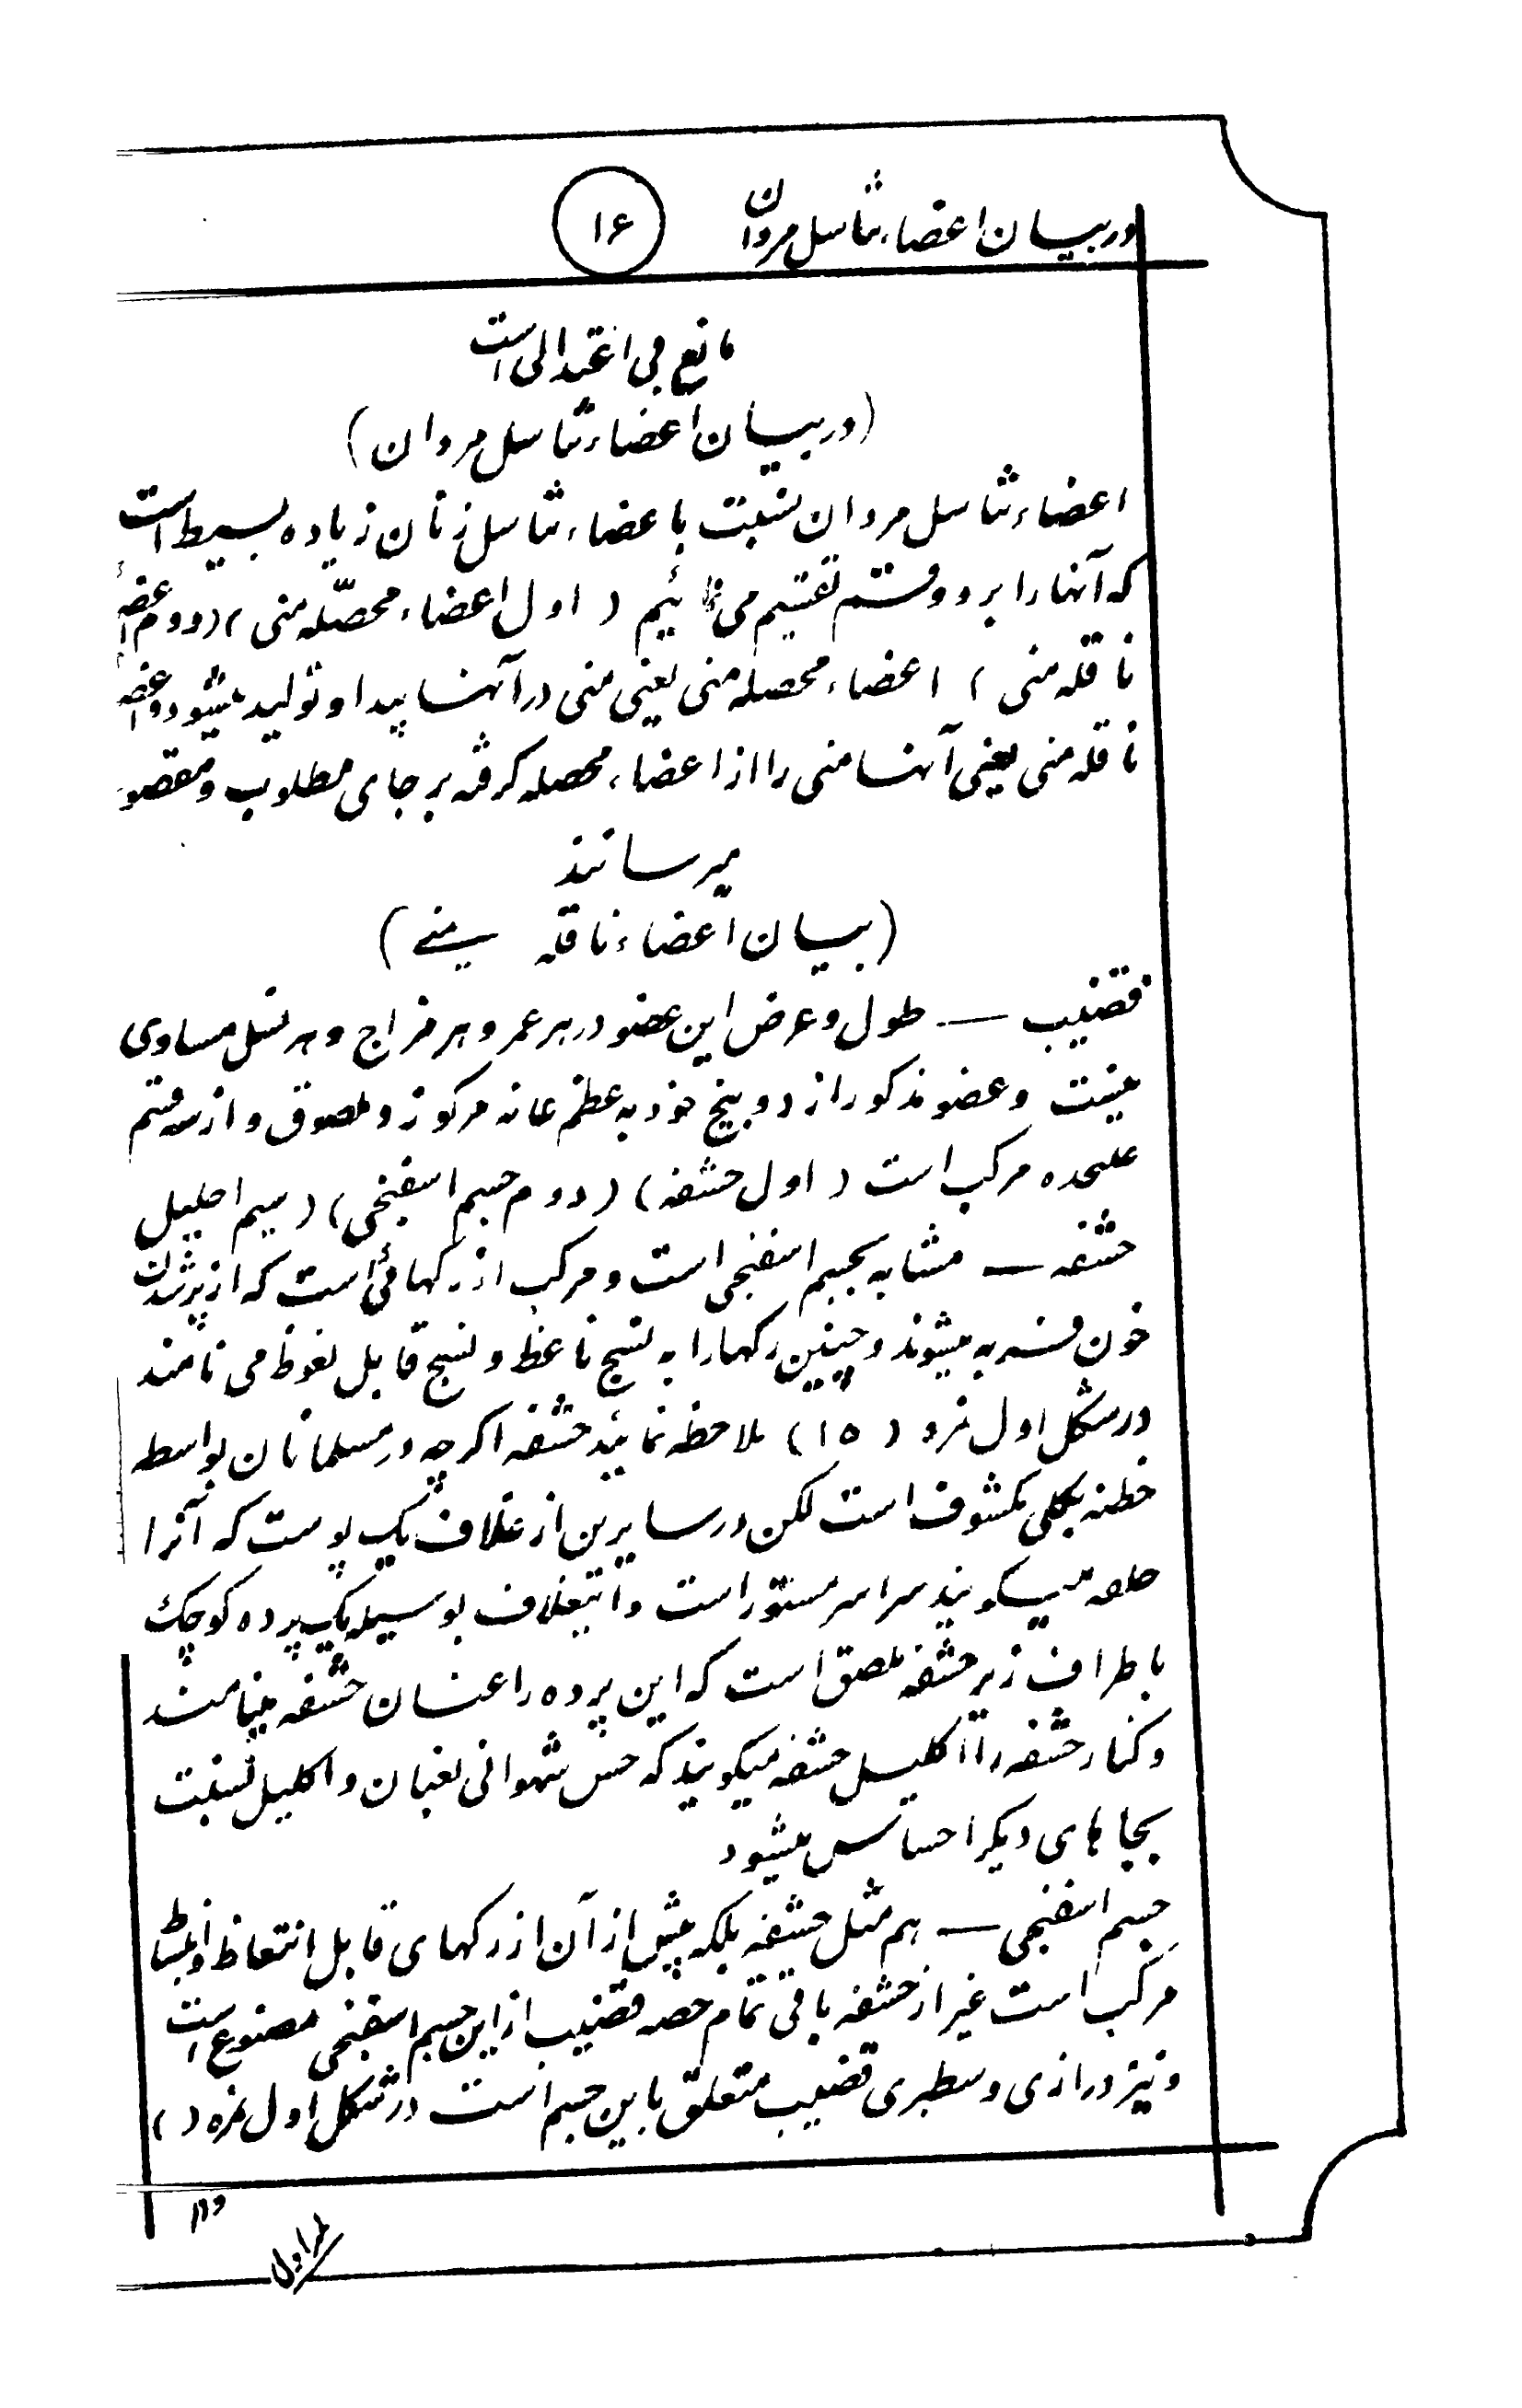 در بیان اعضاء تناسل مردان
۱۶
مانع بی اعتدالی است
(در بیان اعضاء تناسل مردان)
اعضاء تناسل مردان نسبت باعضاء تناسل زنان زیاده بسیط است
که آنها را بر دو قسم تقسیم می نمائیم (اول اعضاء محصّله منی) (دوم اعضاء
ناقله منی) اعضاء محصله منی یعنی منی در آنها پیدا و تولید میشود و اعضاء
ناقله منی یعنی آنها منی را از اعضاء محصله گرفته بر جای مطلوب و مقصو
میرسانند
(بیان اعضاء ناقله منی)
قضیب — طول و عرض این عضو در هر عمر و هر مزاج و هر نسل مساوی
نیست و عضو مذکور از دو بیخ خود به عظم عانه مرکوز و ملصوق و از سه قسم
علیحده مرکب است (اول حشفه) (دوم جسم اسفنجی) (سیم احلیل
حشفه — مشابه بجسم اسفنجی است و مرکب از رگهائی است که از پر شدن
خون فربه میشوند و چنین رگها را به نسج ناعظ و نسج قابل نعوظ می نامند
در شکل اول نمره (۱۵) ملاحظه نمائید حشفه اگرچه در مسلمانان بواسطه
خطنه بکلی مکشوف است لکن در سایرین از غلاف یک پوست که آنرا
میگویند سراسر مستور است و اینغلاف بوسیله یک پرده کوچک
باطراف زیر حشفه ملصق است که این پرده را عنان حشفه مینامند
و کنار حشفه را اکلیل حشفه میگویند که حس شهوانی بعنان و اکلیل نسبت
بجاهای دیگر احساس میشود
جسم اسفنجی — هم مثل حشفه بلکه بیش از آن از رگهای قابل انتعاظ و انبساط
مرکب است غیر از حشفه باقی تمام حصه قضیب از این جسم اسفنجی مصنوع است
و نیز درازی و سطبری قضیب متعلق باین جسم است در شکل اول نمره ( )